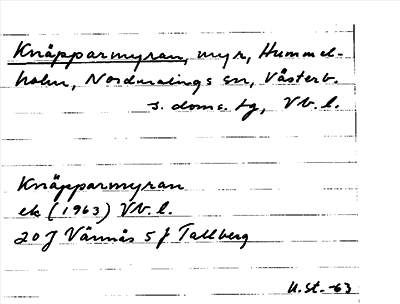 Knäpparmyran, myr, Hummel-
holm, Nordmalings sn, Västerb.
s. doms. tg, Vb. l.
Knäpparmyran
ek (1963) Vb. l.
20 J Vännäs 5 f Tallberg
U.St. -63